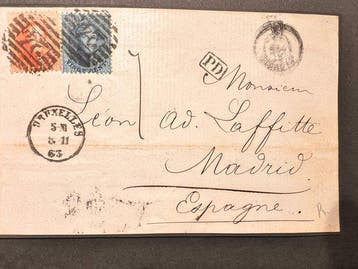 PD
Monsieur
Léon Ad. Laffitte
Madrid
Espagne.
BRUXELLES
5-M
8-11
63
R.